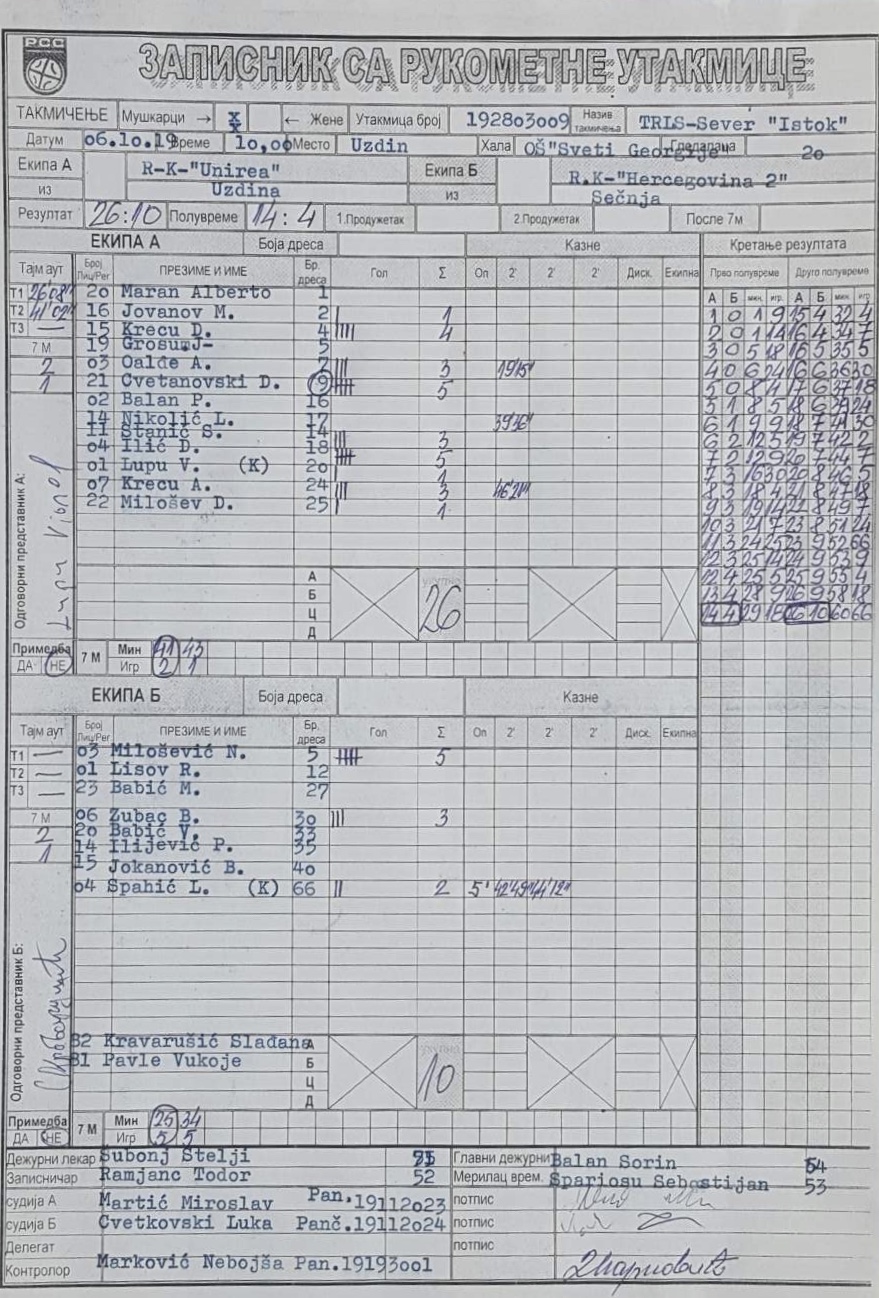 РСС
ЗАПИСНИК СА РУКОМЕТНЕ УТАКМИЦЕ
ТАКМИЧЕЊЕ Мушкарци → X ← Жене Утакмица број 192803009 Назив такмичења TRLS-Sever "Istok"
Датум 06.10.19 Време 10,00 Место Uzdin Хала OŠ"Sveti Georgije" Гледалаца 20
Екипа А R-K-"Unirea" Екипа Б R.K-"Hercegovina 2"
из Uzdina из Sečnja
Резултат 26:10 Полувреме 14:4 1.Продужетак 2.Продужетак После 7м
ЕКИПА А Боја дреса Казне Кретање резултата
Тајм аут Број Лиц/Рег ПРЕЗИМЕ И ИМЕ Бр. дреса Гол Σ Оп 2' 2' 2' Диск. Екипна Прво полувреме Друго полувреме
А Б мин. игр. А Б мин. игр.
T1 26'08" 20 Maran Alberto 1
T2 41'02" 16 Jovanov M. 2 | 1
T3 — 15 Krecu D. 4 |||| 4
19 Grosu J- 5
7 М
2 03 Oalde A. 7 ||| 3 19'15"
1 21 Cvetanovski D. 9 5
02 Balan P. 16
14 Nikolić L. 17 39'36"
11 Stanić S. 14
04 Ilić D. 18 ||| 3
01 Lupu V. (K) 20 5
1
07 Krecu A. 24 ||| 3 46'21"
22 Milošev D. 25 | 1
1 0 1 9 15 4 32 4
2 0 1 14 16 4 34 7
3 0 5 18 16 5 35 5
4 0 6 24 16 6 36 30
5 0 8 4 17 6 37 18
5 1 8 5 18 6 39 24
6 1 9 9 18 7 41 30
6 2 12 5 19 7 42 2
7 2 12 9 20 7 44 7
7 3 16 30 20 8 46 5
8 3 18 4 21 8 47 18
9 3 19 14 22 8 49 7
10 3 21 7 23 8 51 24
11 3 24 25 23 9 52 66
12 3 25 14 24 9 53 9
12 4 25 5 25 9 55 4
13 4 28 9 26 9 58 18
14 4 29 18 26 10 60 66
Одговорни представник А:
А
Б
Ц
Д
укупно
26
Примедба ДА НЕ 7 М Мин 41 43
Игр 2 1
ЕКИПА Б Боја дреса Казне
Тајм аут Број Лиц/Рег ПРЕЗИМЕ И ИМЕ Бр. дреса Гол Σ Оп 2' 2' 2' Диск. Екипна
T1 — 03 Milošević N. 5 5
T2 — 01 Lisov R. 12
T3 — 23 Babić M. 27
7 М 06 Zubac B. 30 ||| 3
2 20 Babić V. 33
1 14 Ilijević P. 35
15 Jokanović B. 40
04 Spahić L. (K) 66 || 2 5' 42'49" 44'12"
Одговорни представник Б:
B2 Kravarušić Slađana А
B1 Pavle Vukoje Б
Ц
Д
укупно
10
Примедба ДА НЕ 7 М Мин 25 34
Игр 5 5
Дежурни лекар Subonj Stelji Главни дежурни Balan Sorin 54
Записничар Ramjanc Todor 52 Мерилац врем. Spariosu Sebastijan 53
судија А Martić Miroslav Pan.19112023 потпис
судија Б Cvetkovski Luka Panč.19112024 потпис
Делегат потпис
Контролор Marković Nebojša Pan.19193001